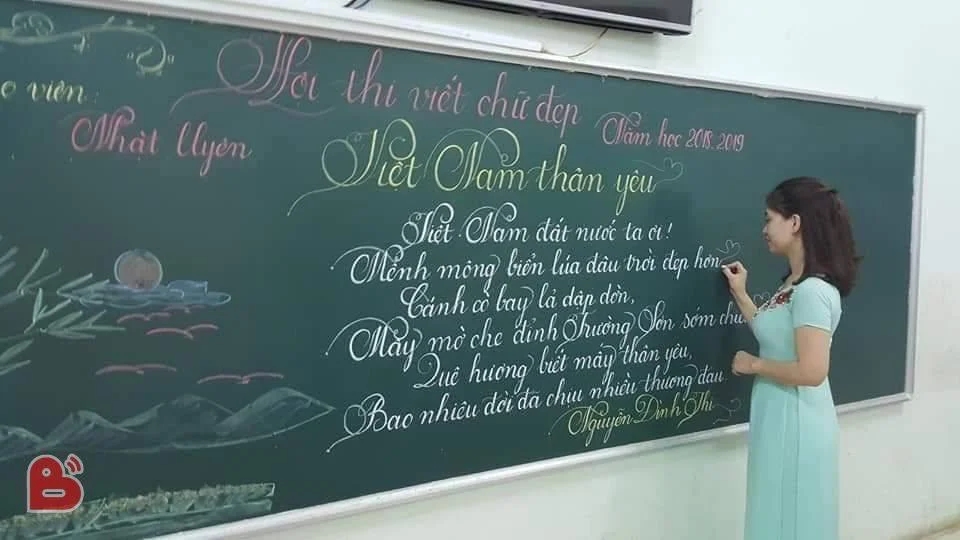 Hội thi viết chữ đẹp
o viên:
Nhật Uyên
Năm học 2018-2019
Việt Nam thân yêu
Việt Nam đất nước ta ơi!
Mênh mông biển lúa đâu trời đẹp hơn
Cánh cò bay lả dập dờn,
Mây mờ che đỉnh Trường Sơn sớm chiều.
Quê hương biết mấy thân yêu,
Bao nhiêu đời đã chịu nhiều thương đau.
Nguyễn Đình Thi
B